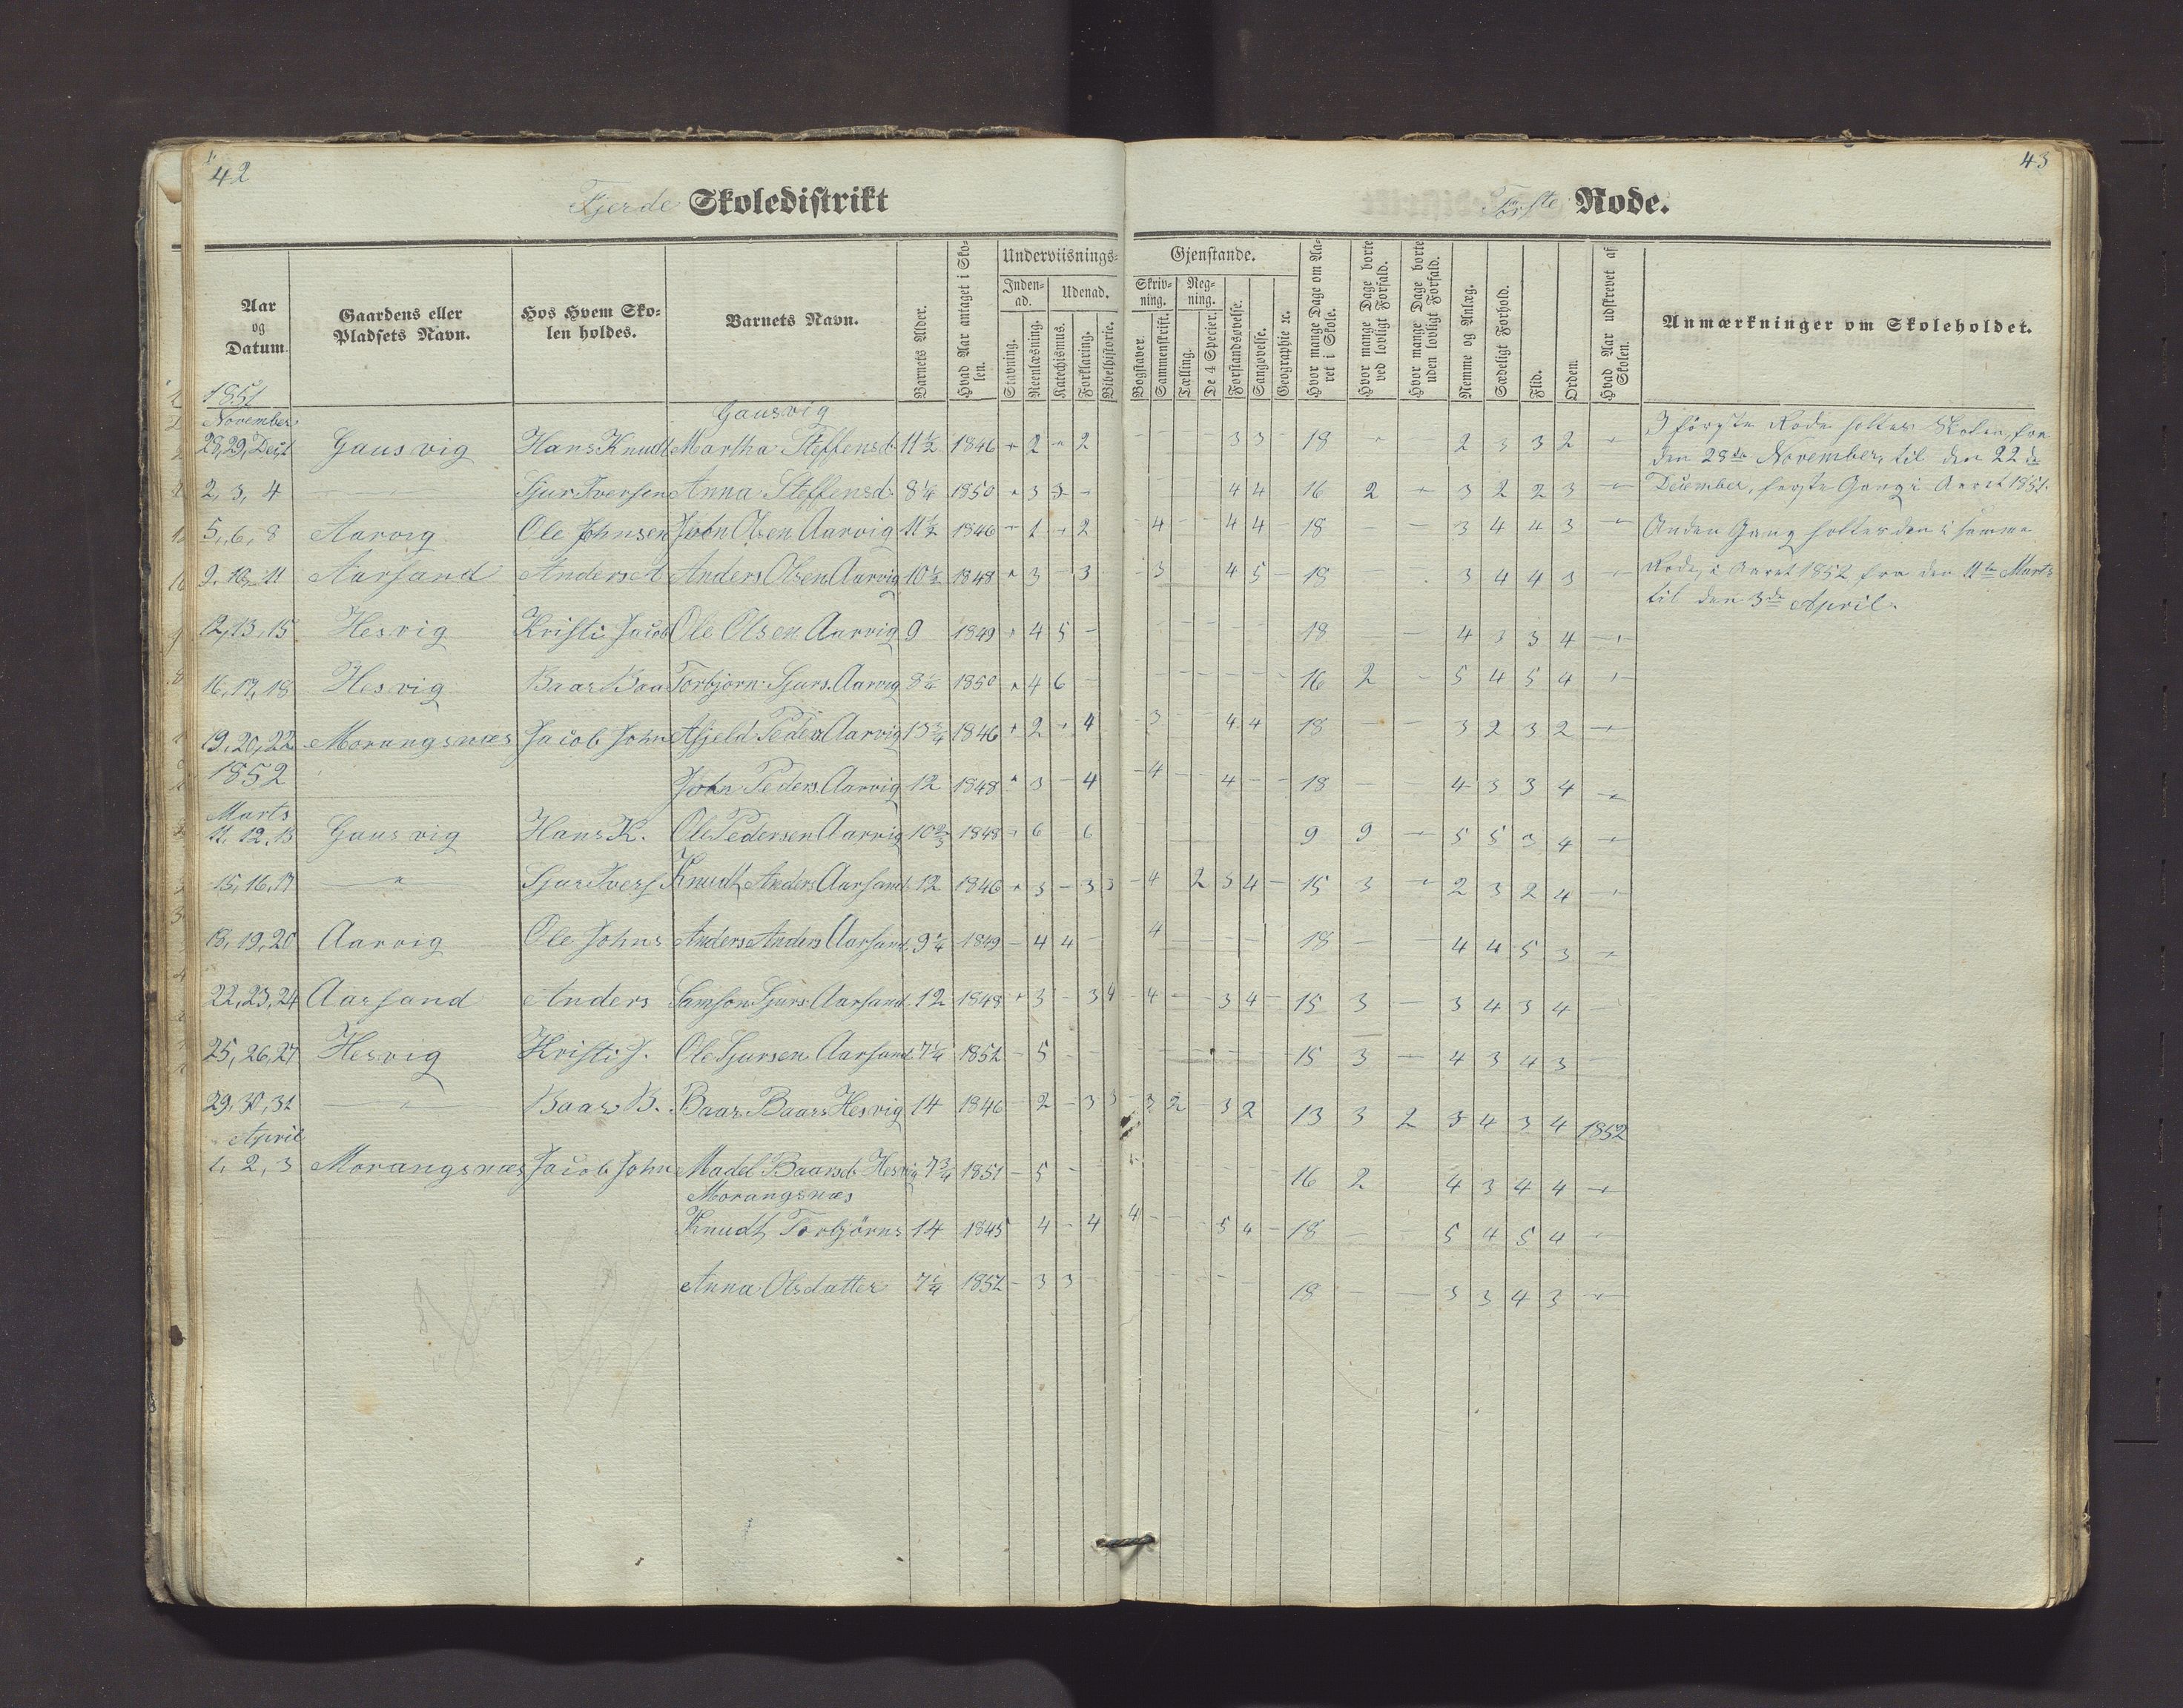 42
Fjerde Skoledistrikt
Aar og Datum.
Gaardens eller Pladsets Navn.
Hos Hvem Skolen holdes.
Barnets Navn.
Barnets Alder.
Hvad Aar antaget i Skolen.
Underviisnings-
Inden-ad.
Udenad.
Stavning.
Reenlæsning.
Katechismus.
Forklaring.
Bibelhistorie.
1851
November
Gausvig
28, 29, Decbr Gausvig Hans Knudt Martha Steffensd. 11½ 1846 " 2 " 2
2, 3, 4 — Sjur Iversen Anna Steffensd. 8¼ 1850 " 3 3 -
5, 6, 8 Aarvig Ole Johnsen John Olsen Aarvig 11½ 1846 - 1 - 2
9, 10, 11 Aarsand Anders A Anders Olsen Aarvig 10½ 1848 " 3 - 3
12, 13, 15 Hesvig Kristi Jacob Ole Olsen Aarvig 9 1849 " 4 5 -
16, 17, 18 Hesvig Baar Baa Torbjörn Sjurs. Aarvig 8¼ 1850 " 4 6 -
19, 20, 22 Morangsnæs Jacob John Asjeld Peders Aarvig 13¾ 1846 " 2 - 4
1852
John Peders. Aarvig 12 1848 " 3 - 4
Marts
11, 12, 13 Gausvig Hans K. Ole Pedersen Aarvig 10⅔ 1848 - 6 - 6
15, 16, 17 — " — Sjur Ivers Knudt Anders Aarsand 12 1846 " 3 - 3 3
18, 19, 20 Aarvig Ole Johns Anders Anders Aarsand 9¼ 1849 - 4 4 -
22, 23, 24 Aarsand Anders Samson Sjurs. Aarsand 12 1848 " 3 - 3 4
25, 26, 27 Hesvig Kristi J. Ole Sjursen Aarsand 7¼ 1852 - 5 - -
29, 30, 31 — " — Baar B. Baar Baars Hesvig 14 1846 - 2 - 3 3
April
1, 2, 3 Morangsnæs Jacob John Madel Baarsd. Hesvig 7¾ 1851 - 5 -
Morangsnæs
Knudt Torbjörns 14 1845 4 - 4
Anna Olsdatter 7¼ 1852 - 3 3
43
Förste Rode.
Gjenstande.
Skriv-ning.
Reg-ning.
Bogstaver.
Sammenskrift.
Tælling.
De 4 Specier.
Forstandsøvelse.
Sangøvelse.
Geographie rc.
Hvor mange Dage om Aaret i Skole.
Hvor mange Dage borte ved lovligt Forfald.
Hvor mange Dage borte uden lovligt Forfald.
Nemme og Anlæg.
Sædeligt Forhold.
Flid.
Orden.
Hvad Aar udskrevet af Skolen.
Anmærkninger om Skoleholdet.
- - - - 3 3 - 18 " 2 3 3 2 "
4 4 16 2 - 3 2 2 3 -
- 4 - - 4 4 18 - - 3 4 4 3 "
- 3 - - 4 5 - 18 3 4 4 3 -
18 - 4 3 3 4 -
16 2 - 5 4 5 4 -
- 3 - - 4 4 - 18 - - 3 2 3 2 -
- 4 - - 4 - - 18 - 4 3 3 4 -
9 9 - 5 5 3 4 -
- 4 2 3 4 - 15 3 - 2 3 2 4 -
4 - - - - 18 - - 4 4 5 3 -
- 4 - - 3 4 - 15 3 - 3 4 3 4 -
15 3 - 4 3 4 3 -
- 3 2 - 3 2 13 3 2 3 4 3 4 1852
16 2 4 3 4 4 -
4 - - - 5 4 - 18 - 5 4 5 4 -
18 - - 3 3 4 3 -
I förste Rode holtes Skolen fra
den 28de November, til den 22de
December, första Gang i Aaret 1851.
Anden Gang holtes den i samme
Rode, i Aaret 1852 fra den 11te Marts
til den 3de April.